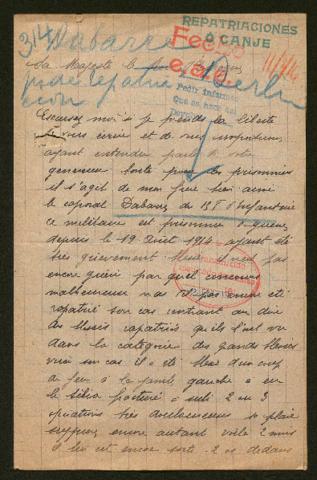 314
REPATRIACIONES
O CANJE
Fecha
Dabarre
Sa Majesté le
pide repatria
Berlin
Pedir informes
Que se haga
Excusez moi si je prends la liberté
de vous écrire et de vous importuner
ayant entendu parler de votre
généreuse bonté pour les prisonniers
il s'agit de mon frère bien aimé
le caporal Dabarre, du d'Infanterie
ce militaire est prisonnier de guerre
depuis le 19 Août 1914 ayant été
très grièvement blessé il n'est pas
encore guéri par quel concours
malheureux n'a t'il pas encore été
rapatrié son cas rentrant au dire
des blessés rapatriés qu'ils l'ont vu
dans la catégorie des grands blessés
voici son cas il a été blessé d'un coup
de feu à la jambe gauche a eu
le tibia fracturé a subi 2 ou 3
opérations très douloureuses sa plaie
suppure encore autant voilà 2 mois
il lui est encore sorti 2 os dedans